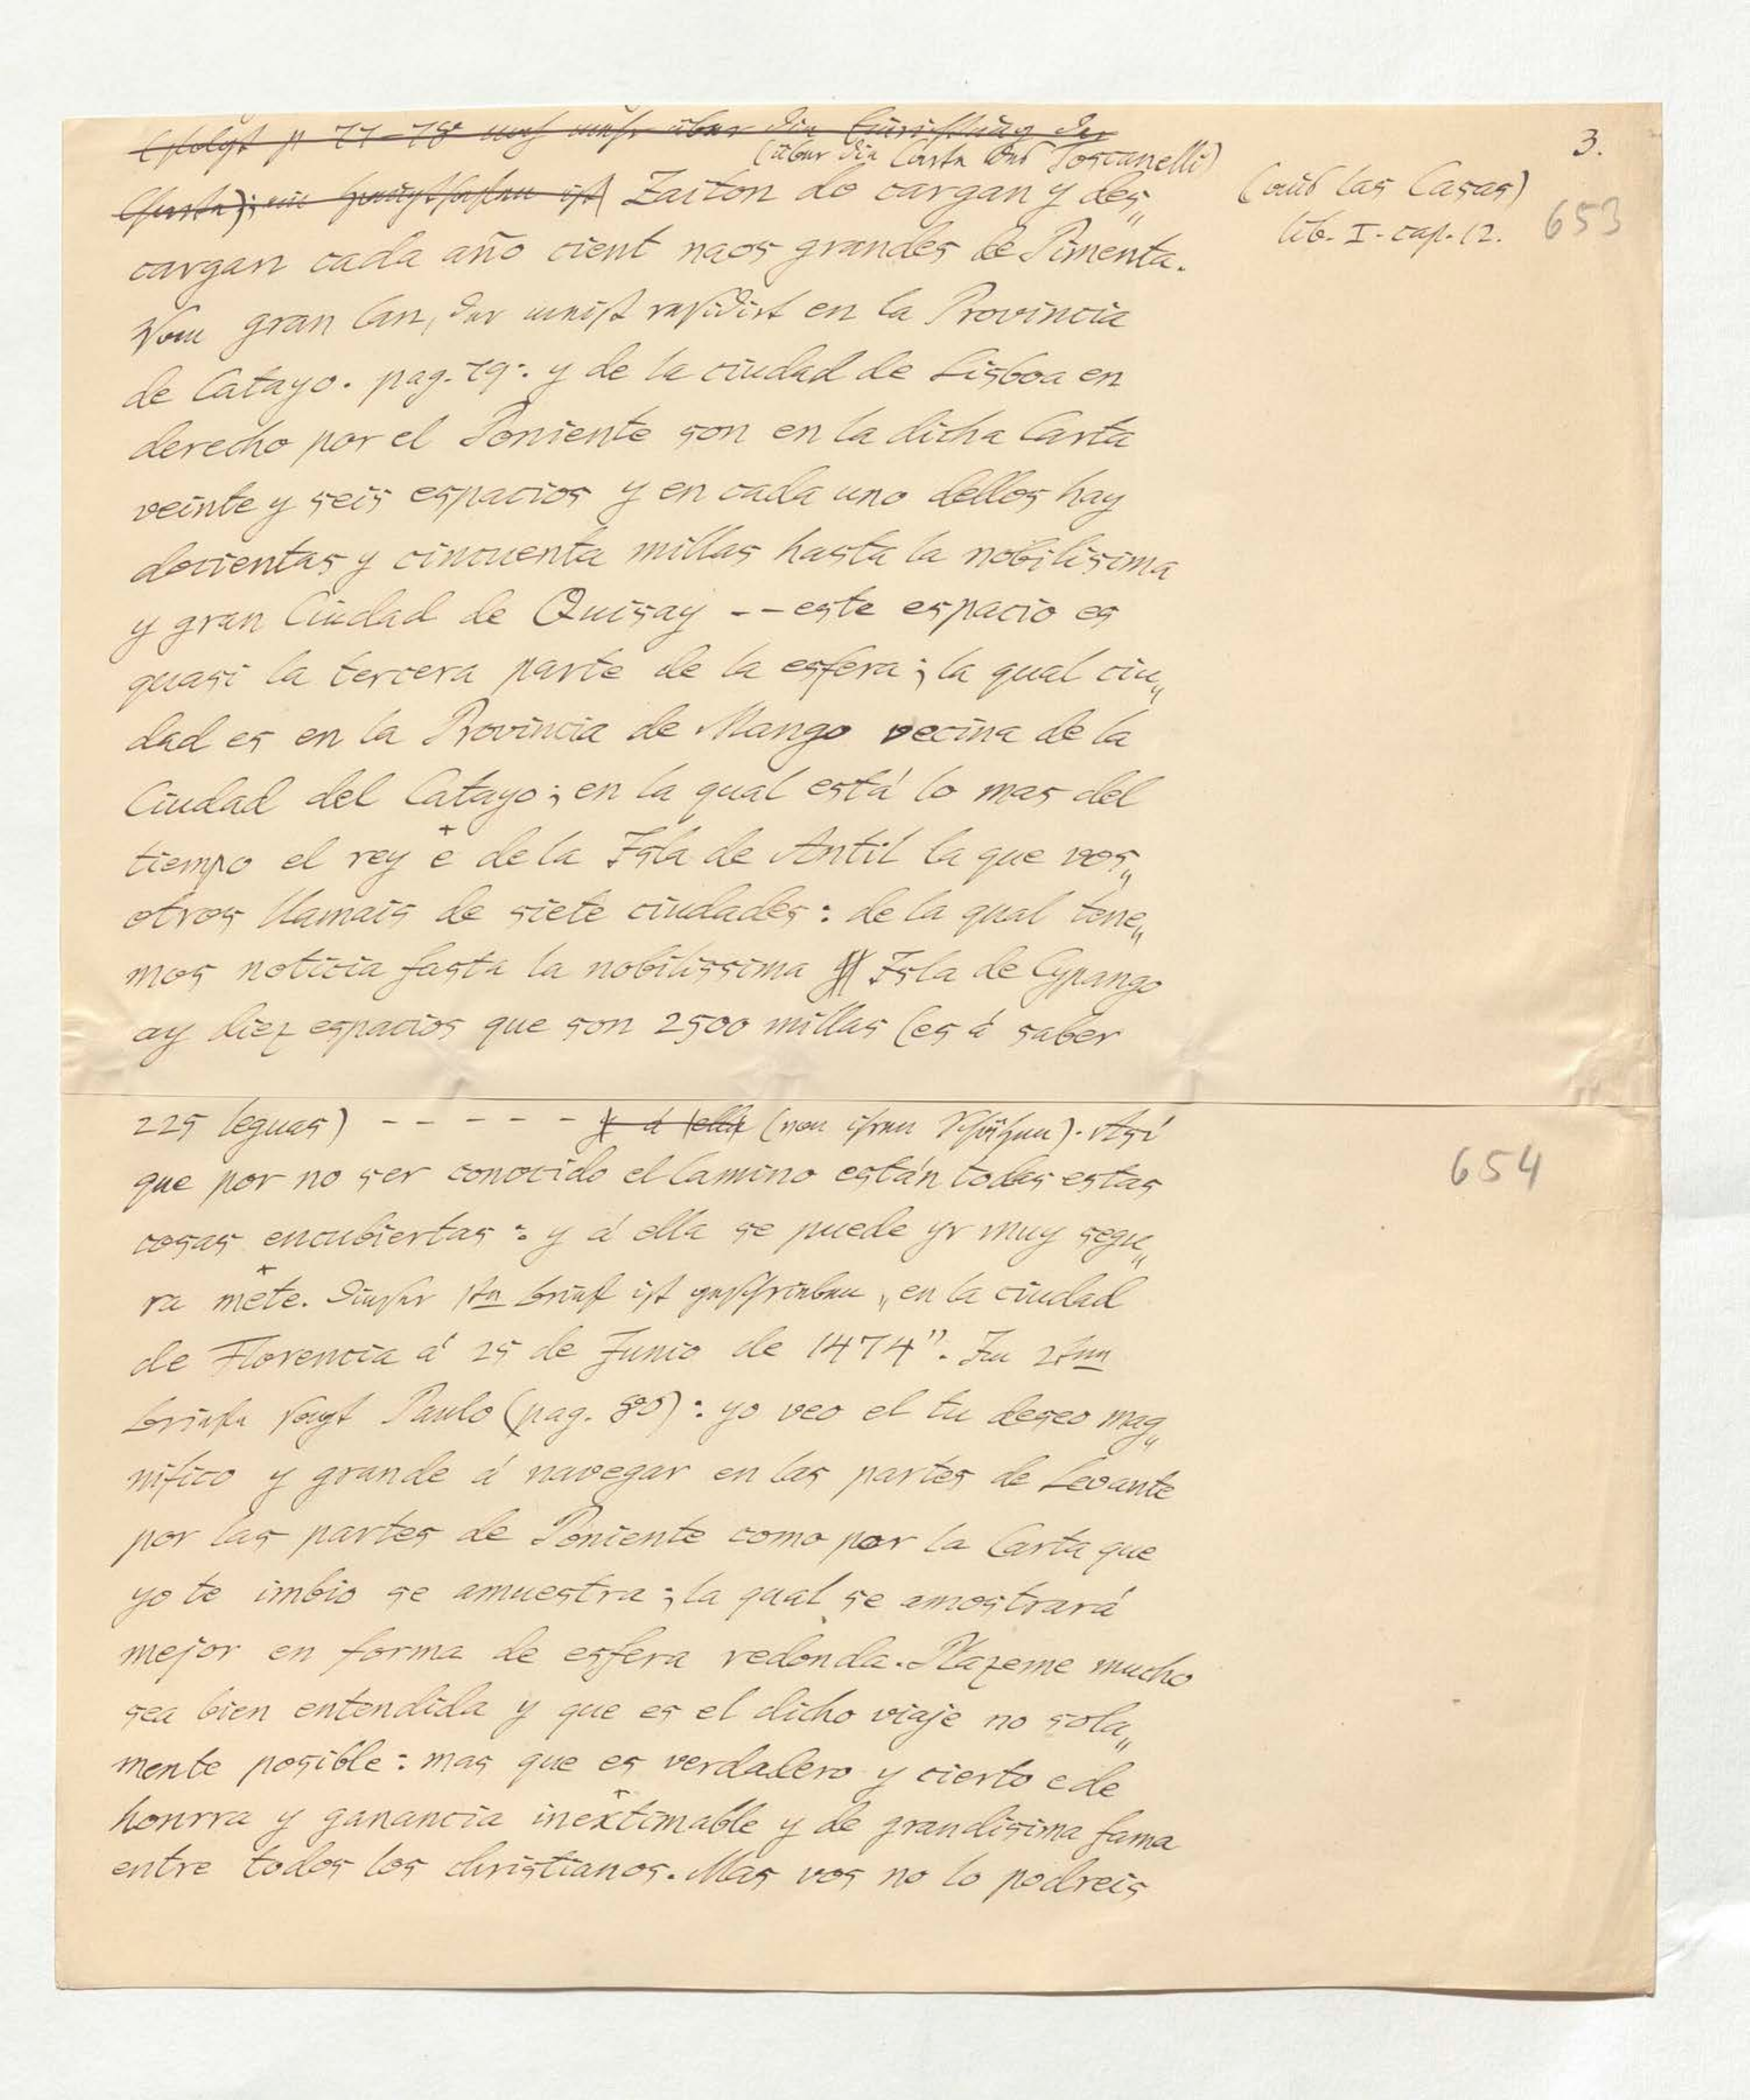 3.
(folgt p 77-78 noch mehr über die Einrichtung der
(über die Carta des Toscanelli)
Charta); ein Hafen ist) Zaiton do cargan y des„
cargan cada año cient naos grandes de Pimenta.
(aus las Casas)
lib. I. cap. 12.
653
Vom gran Can, der meist residirt en la Provincia
de Catayo. pag. 79: y de la ciudad de Lisboa en
derecho por el Poniente son en la dicha Carta
veinte y seis espacios y en cada uno dellos hay
docientas y cincuenta millas hasta la nobilisima
y gran Ciudad de Quisay -- este espacio es
quasi la tercera parte de la esfera; la qual ciu„
dad es en la Provincia de Mango vecina de la
Ciudad del Catayo; en la qual está lo mas del
tiempo el rey ë de la Isla de Antil la que vos„
otros llamais de siete ciudades: de la qual tene„
mos noticia fasta la nobilissima Isla de Cypango
ay diez espacios que son 2500 millas (es á saber
225 leguas) - - - - - - y á ella (von ihren Schätzen). Así
que por no ser conocido el Camino están todas estas
654
cosas encubiertas: y á ella se puede yr muy segu„
ra mẽte. Dieser 1te Brief ist geschrieben „en la ciudad
de Florencia á 25 de Junio de 1474". Im 2ten
Briefe sagt Paulo (pag. 80): yo veo el tu deseo mag„
nifico y grande á navegar en las partes de Levante
por las partes de Poniente como por la Carta que
yo te imbio se amuestra; la qual se amostrará
mejor en forma de esfera redonda. Plazeme mucho
sea bien entendida y que es el dicho viaje no sola„
mente posible: mas que es verdadero y cierto e de
honrra y ganancia inextimable y de grandisima fama
entre todos los christianos. Mas vos no lo podreis